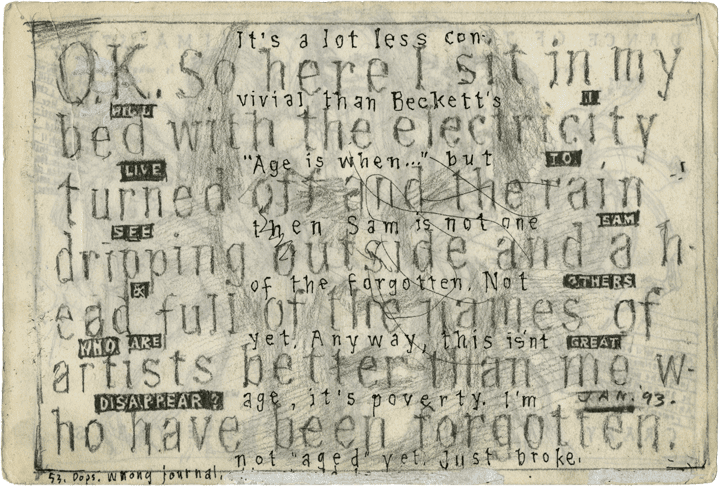 It's a lot less con-
O.K. So here I sit in my
vivial than Beckett's
WILL I
bed with the electricity
"Age is when..." but
LIVE TO
turned off and the rain
then Sam is not one
SEE SAM
dripping outside and a h-
of the forgotten. Not
& OTHERS
ead full of the names of
yet. Anyway, this isn't
WHO ARE GREAT
artists better than me w-
DISAPPEAR? age, it's poverty. I'm JAN. 93.
ho have been forgotten.
not "aged" yet. Just broke.
53. Oops. Wrong journal.